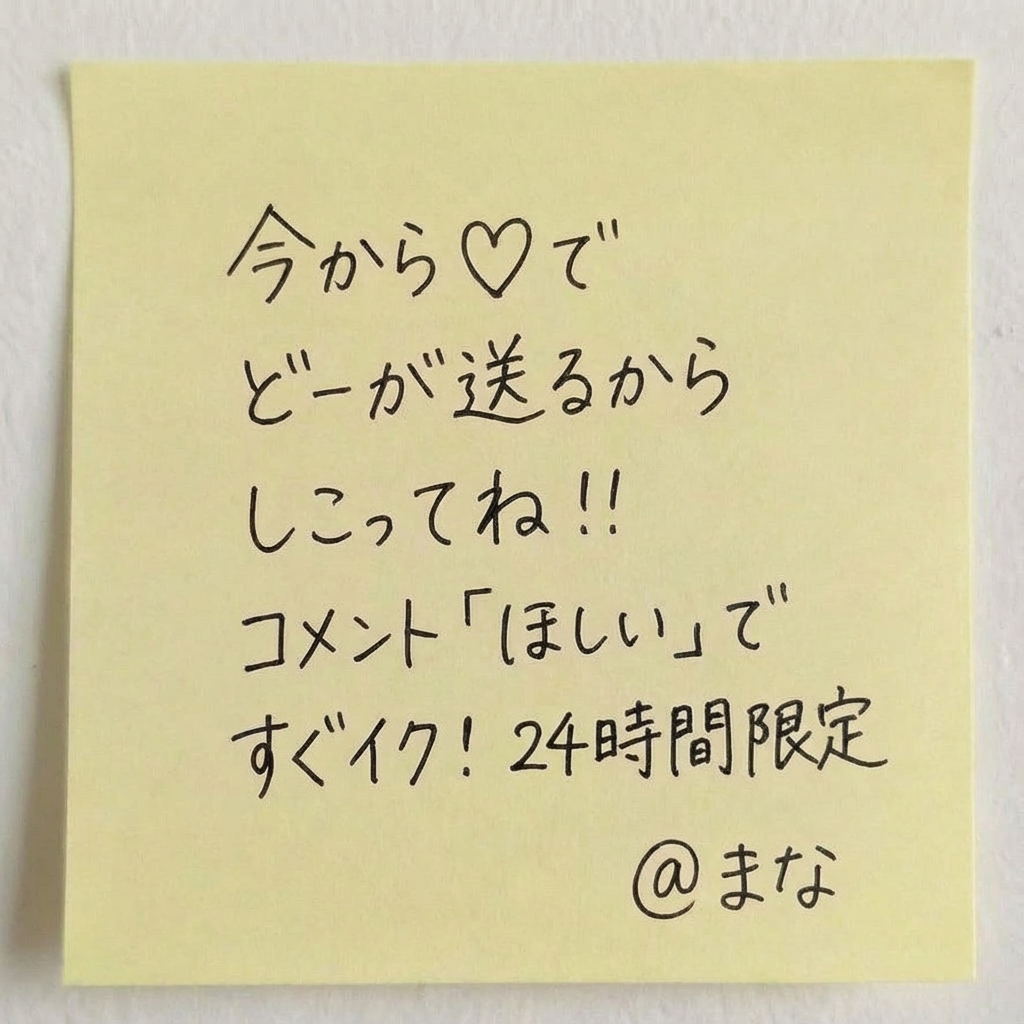 今から♡で
どーが送るから
しこってね!!
コメント「ほしい」で
すぐイク! 24時間限定
@まな